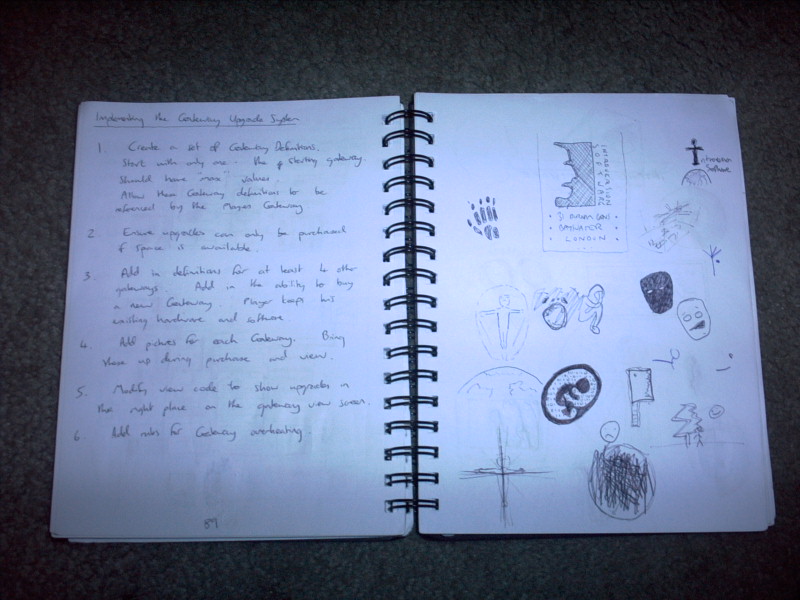 Implementing the Gateway Upgrade System
1. Create a set of Gateway Definitions.
Start with only one - the starting gateway.
Should have "max" values.
Allow these Gateway definitions to be
referenced by the Players Gateway
2 Ensure upgrades can only be purchased
if space is available.
3. Add in definitions for at least 4 other
gateways. Add in the ability to buy
a new Gateway. Player keeps his
existing hardware and software
4. Add pictures for each Gateway. Bring
these up during purchase and view.
5. Modify view code to show upgrades in
the right place on the gateway view screen.
6. Add rules for Gateway overheating.
89
INTROVERSION
SOFTWARE
LONDON
Introversion
Software